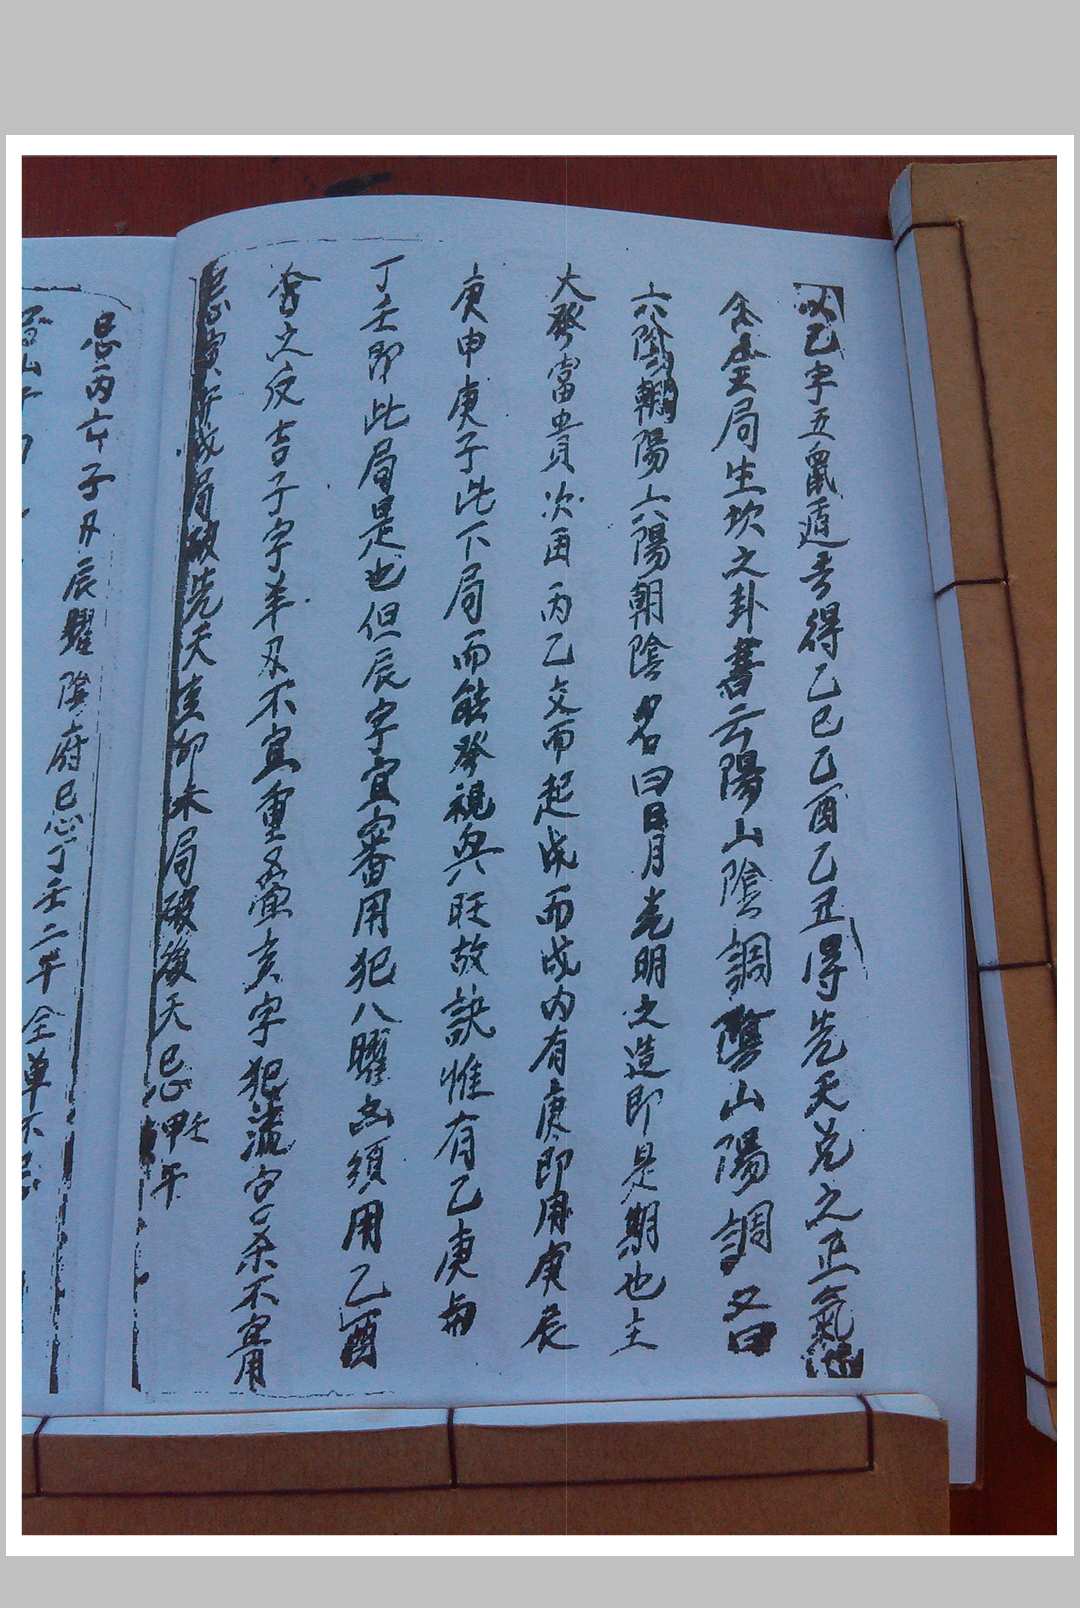 以己字五鼠遁去得乙巳乙酉乙丑得先天兌之正氣
含全局生坎之卦書云陽山陰調陰山陽調又曰
六陰朝陽六陽朝陰名曰日月光明之造即是期也主
大發富貴次由丙乙交而起戊而成內有庚即用庚辰
庚申庚子此下局而能發視與旺故訣惟有乙庚與
丁壬即此局是也但辰字宜審用犯八曜凶須用乙酉
合之反吉子字羊刃不宜重疊亥字犯流字殺不宜用
忌寅午戌局破先天亥卯未局破後天忌甲午壬
忌丙午子刃辰曜陰府忌丁壬二年全單不忌